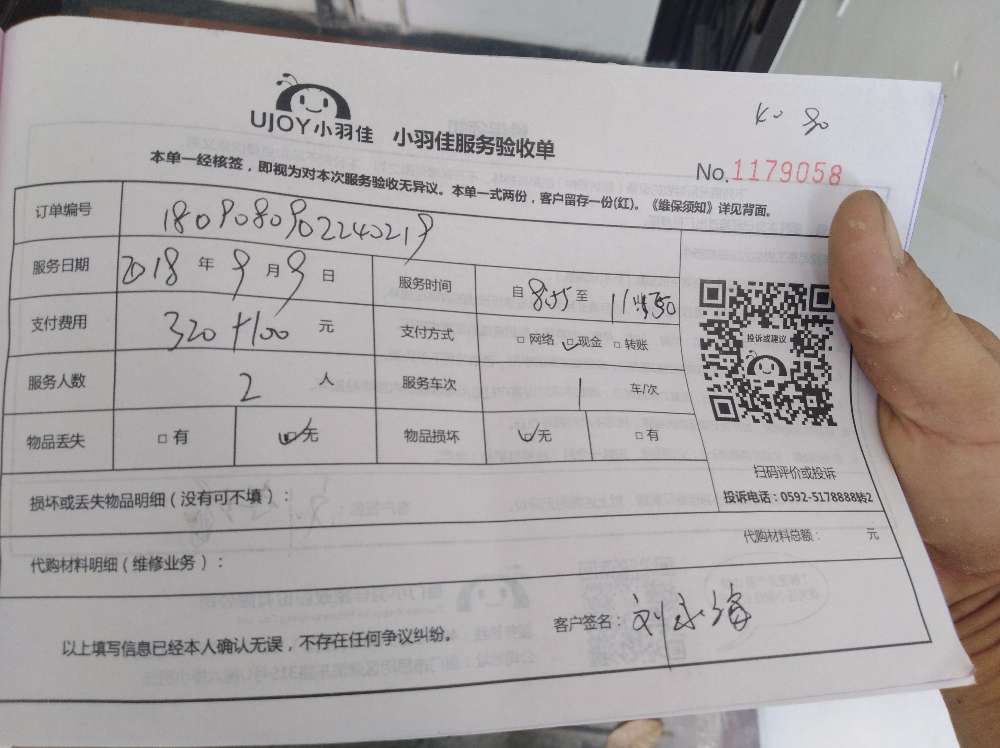 UJOY小羽佳 小羽佳服务验收单
No.1179058
本单一经核签，即视为对本次服务验收无异议。本单一式两份，客户留存一份(红)。《维保须知》详见背面。
订单编号 1809080902240219
服务日期 2018 年 9 月 9 日 服务时间 自 8:55 至
支付费用 320+100 元 支付方式 □网络 □现金 □转账
投诉或建议
服务人数 2 人 服务车次 1 车/次
物品丢失 □有 □无 物品损坏 □无 □有
扫码评价或投诉
投诉电话：0592-5178888转2
损坏或丢失物品明细（没有可不填）：
代购材料总额： 元
代购材料明细（维修业务）：
以上填写信息已经本人确认无误，不存在任何争议纠纷。 客户签名：刘永海